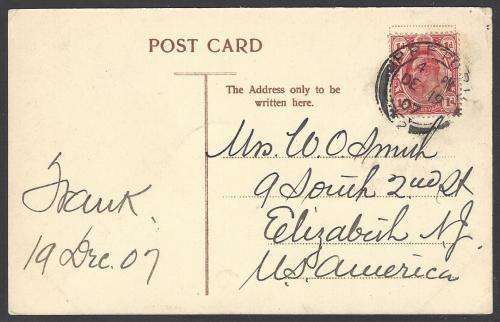 POST CARD
The Address only to be
written here.
PRETORIA
DE 19
07
Mrs. W. O. Smith
9 South 2nd St
Elizabeth N.J.
U.S. America
Frank.
19 Dec. 07